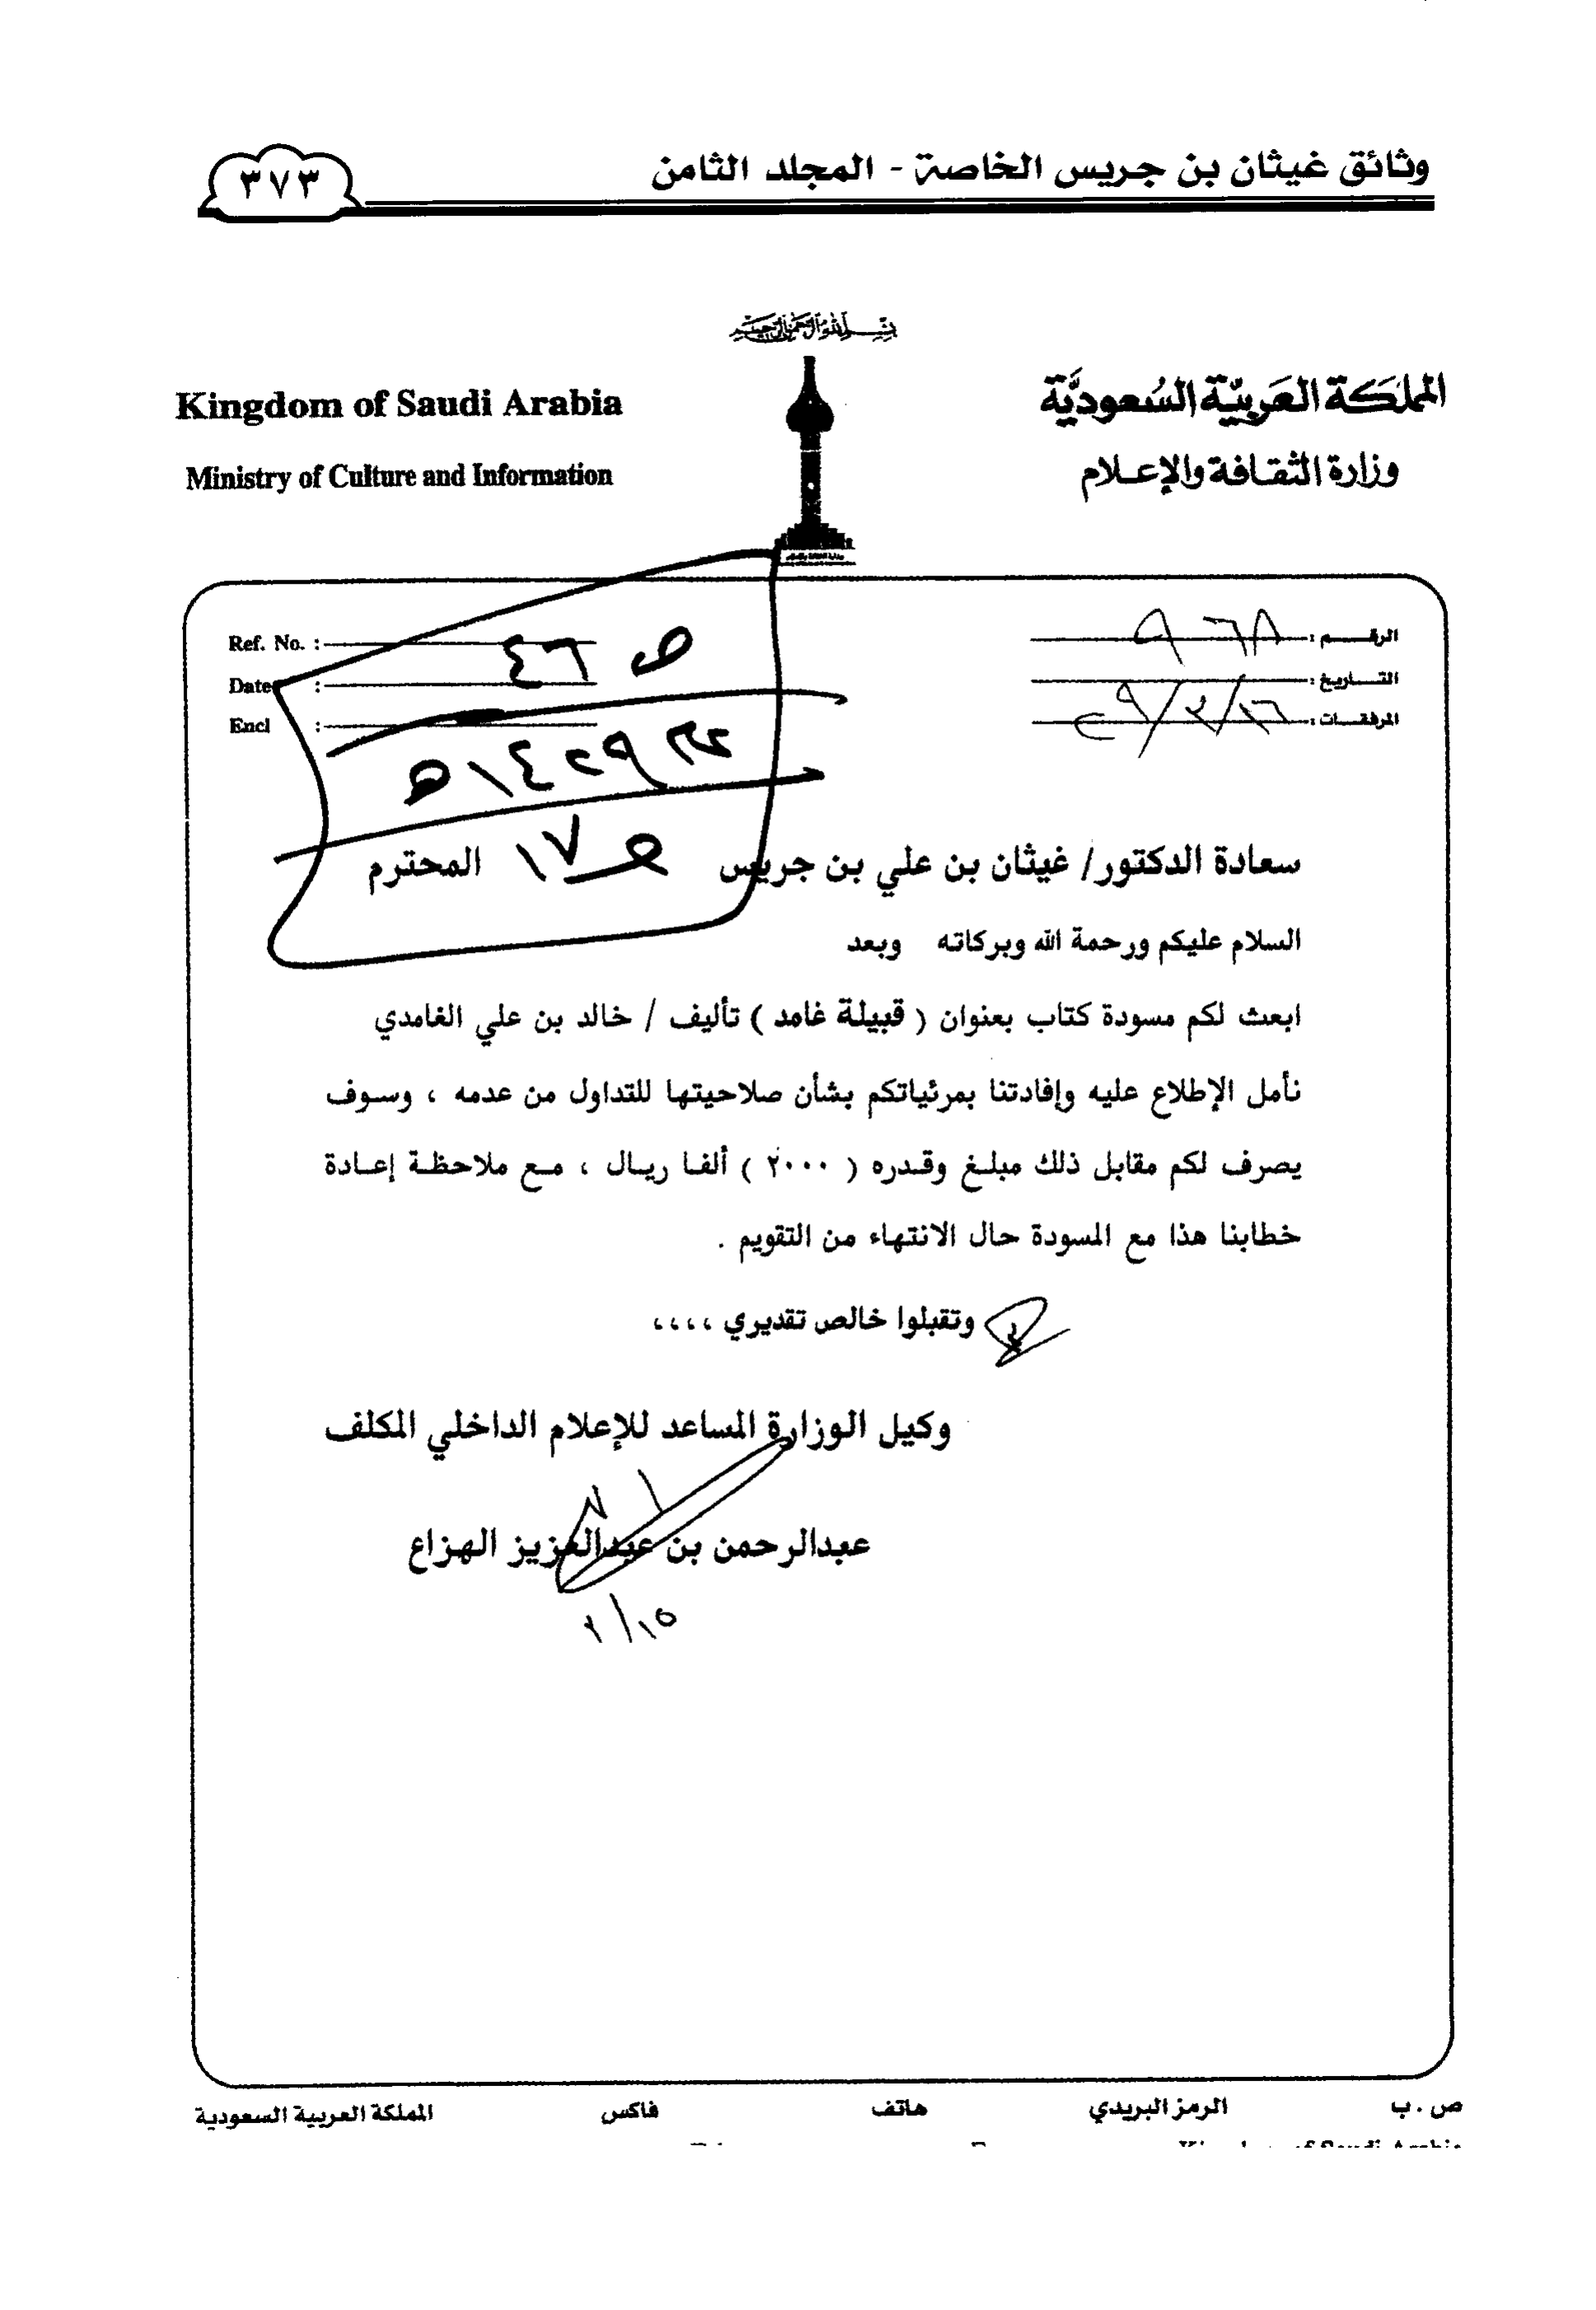 وثائق غيثان بن جريس الخاصة - المجلد الثامن
٣٧٣
بسم الله الرحمن الرحيم
Kingdom of Saudi Arabia
المملكة العربية السعودية
Ministry of Culture and Information
وزارة الثقافة والإعلام
Ref. No. :
الرقـــــم :
Date :
التــاريخ :
Encl :
المرفقــات :
ص ٤٦
١٤٢٩ هـ
ص ١٧
سعادة الدكتور/ غيثان بن علي بن جريس المحترم
السلام عليكم ورحمة الله وبركاته وبعد
ابعث لكم مسودة كتاب بعنوان ( قبيلة غامد ) تأليف / خالد بن علي الغامدي
نأمل الإطلاع عليه وإفادتنا بمرئياتكم بشأن صلاحيتها للتداول من عدمه ، وسوف
يصرف لكم مقابل ذلك مبلغ وقدره ( ٢٠٠٠ ) ألفا ريال ، مع ملاحظة إعادة
خطابنا هذا مع المسودة حال الانتهاء من التقويم .
وتقبلوا خالص تقديري ،،،،
وكيل الوزارة المساعد للإعلام الداخلي المكلف
عبدالرحمن بن عبدالعزيز الهزاع
١٥/٢
ص . ب الرمز البريدي هاتف فاكس المملكة العربية السعودية